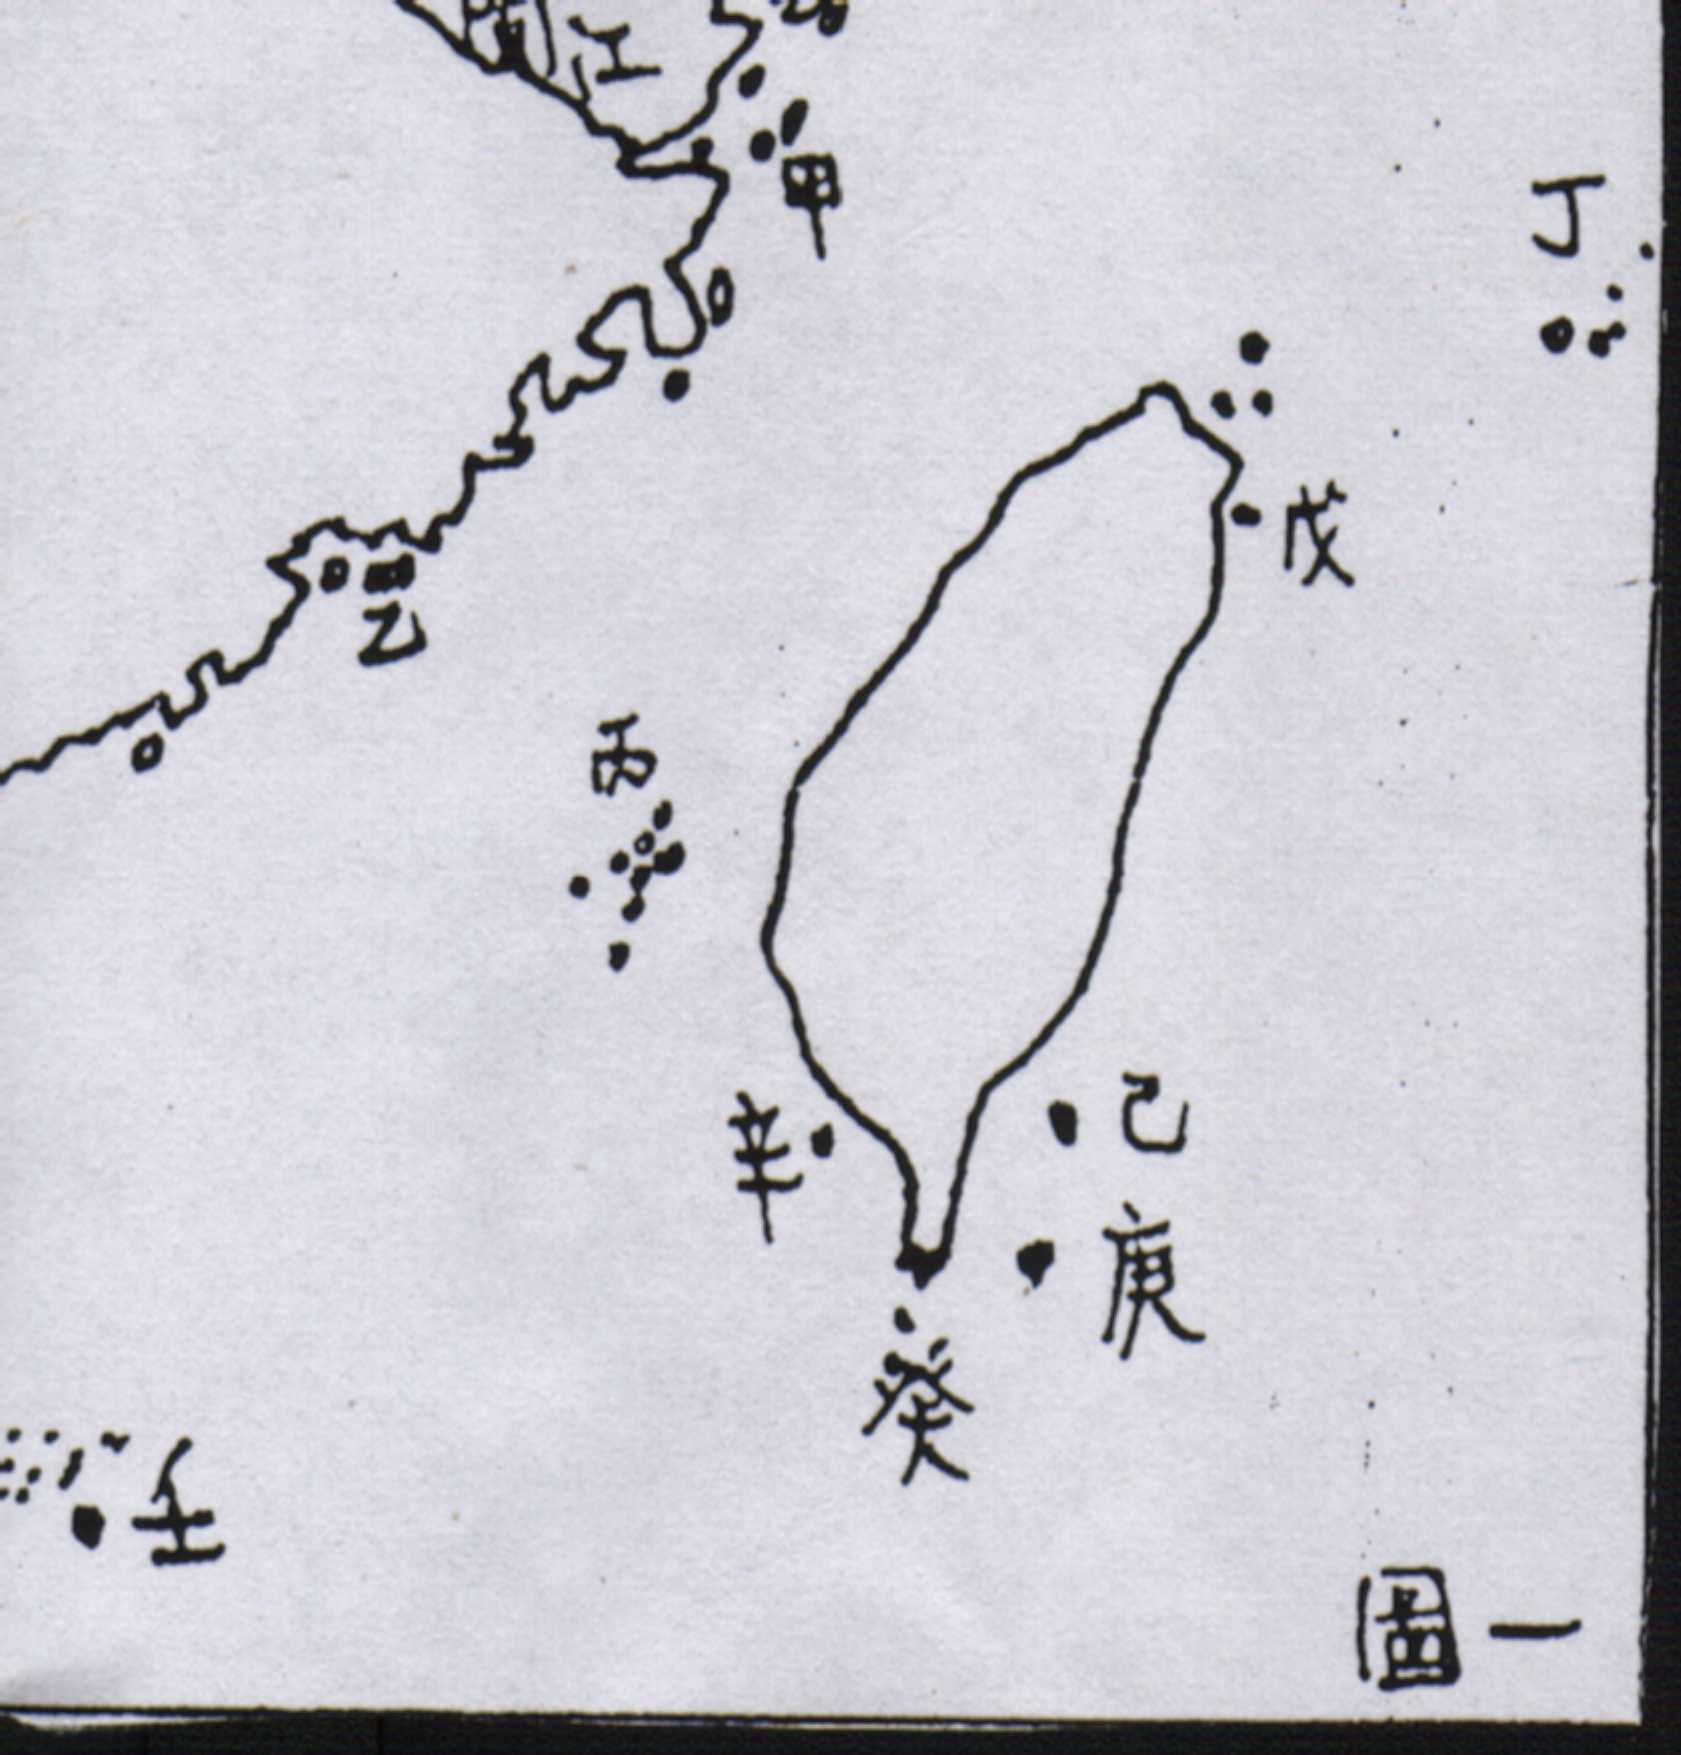 江
甲
丁
戊
乙
丙
己
辛
庚
癸
壬
圖一